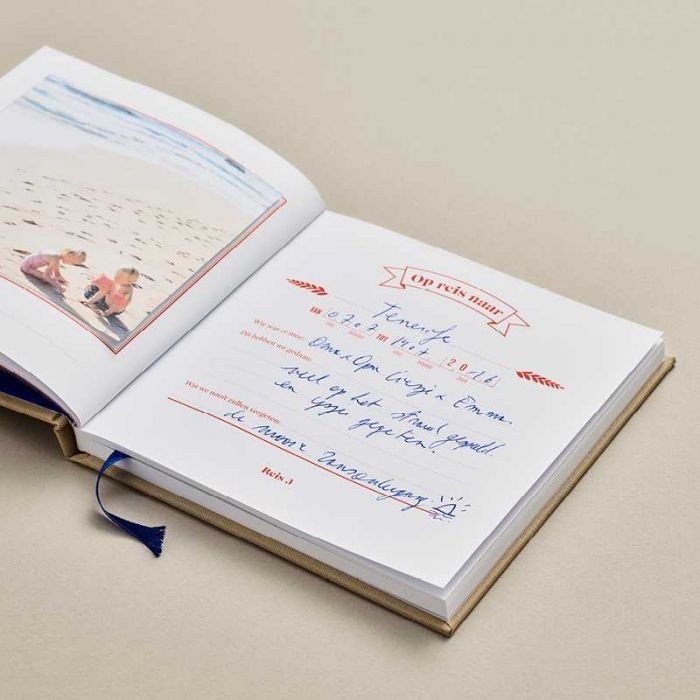 Op reis naar
Tenerife
VAN 07 07 TOT 14 07 2016
Wie was er mee: Oma + Opa Lizzi + Emma.
Dit hebben we gedaan:
veel op het strand gespeeld
en ijsjes gegeten.
Wat we nooit zullen vergeten:
de mooie zonsondergang
Reis 3